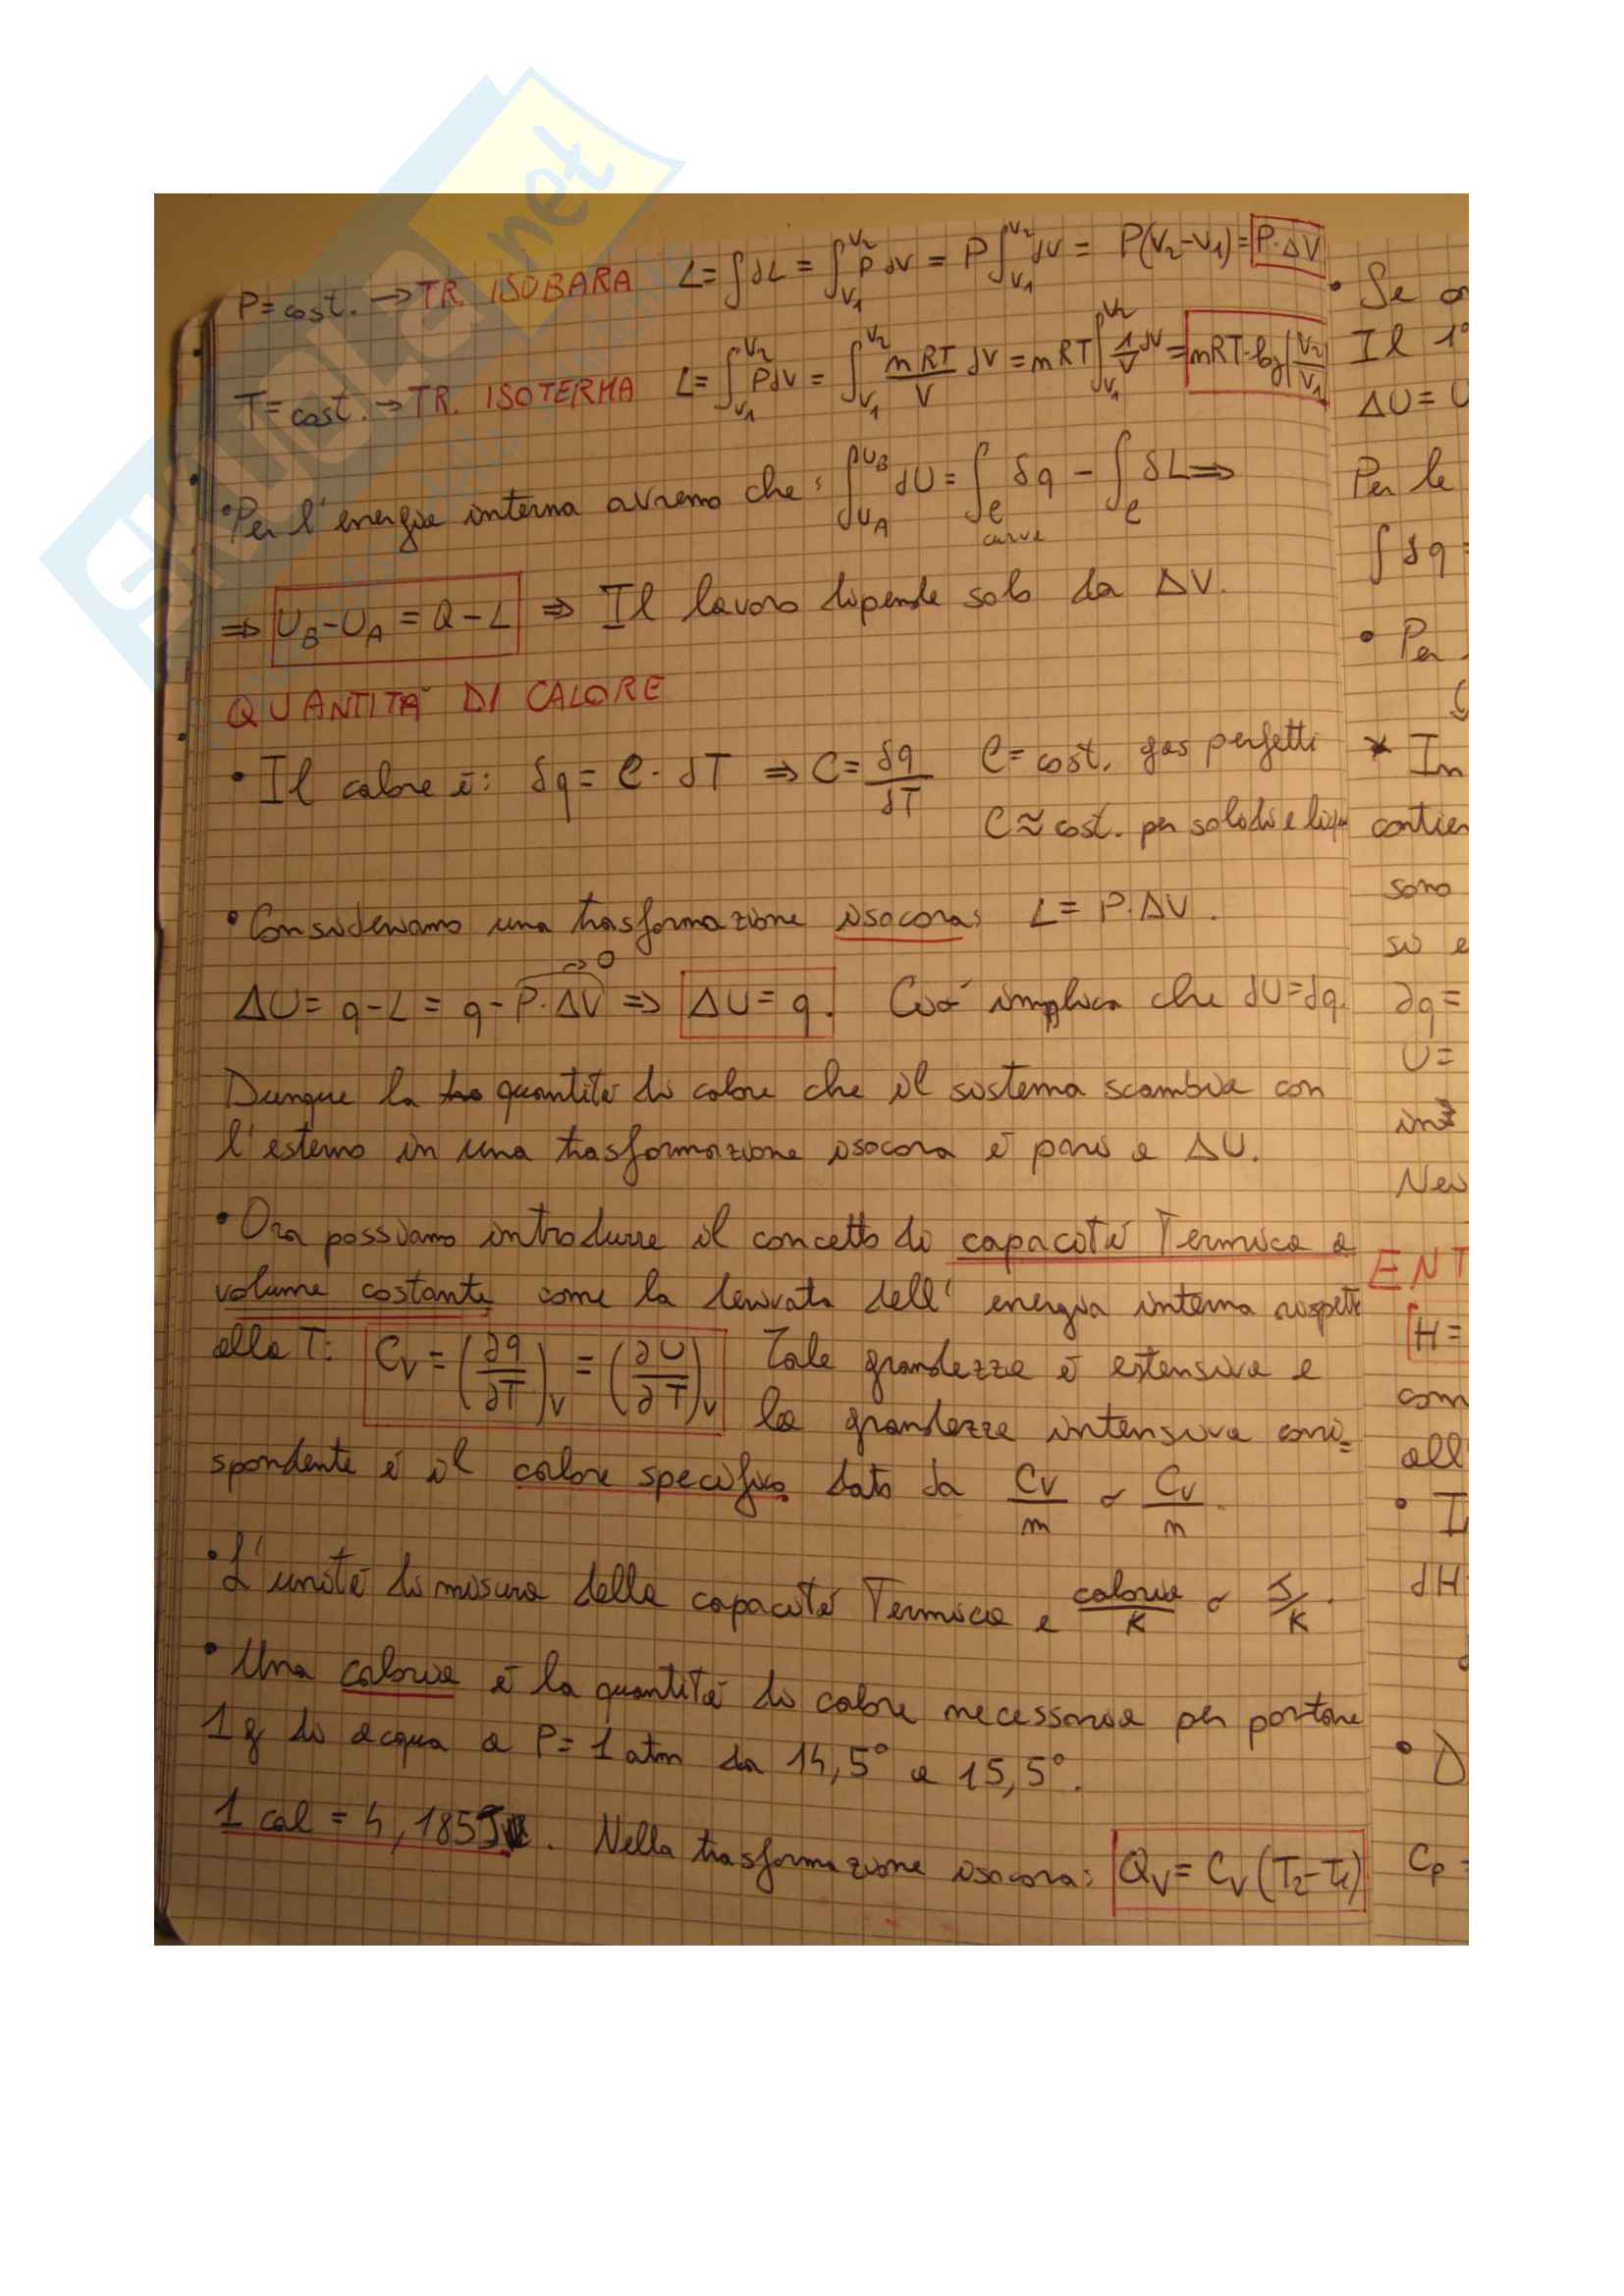 P = cost. → TR. ISOBARA L = ∫dL = ∫_{V1}^{V2} P dV = P∫_{V1}^{V2} dV = P(V2-V1) = P·ΔV
T = cost. → TR. ISOTERMA L = ∫_{V1}^{V2} PdV = ∫_{V1}^{V2} nRT/V dV = nRT∫_{V1}^{V2} 1/V dV = nRT·log|V2/V1|
• Per l'energia interna avremo che: ∫_{UA}^{UB} dU = ∫_e δq - ∫_e δL ⇒
curva
⇒ UB-UA = Q-L ⇒ Il lavoro dipende solo da ΔV.
QUANTITÀ DI CALORE
• Il calore è: δq = C · dT ⇒ C = δq/dT C = cost. gas perfetti
C ≈ cost. per solidi e liqu
• Consideriamo una trasformazione isocora: L = P·ΔV.
→ 0
ΔU = q-L = q-P·ΔV ⇒ ΔU = q. Ciò implica che dU = dq.
Dunque la quantità di calore che il sistema scambia con
l'esterno in una trasformazione isocora è pari a ΔU.
• Ora possiamo introdurre il concetto di capacità Termica a
volume costante, come la derivata dell'energia interna rispetto
alla T: CV = (∂q/∂T)V = (∂U/∂T)V Tale grandezza è estensiva e
la grandezza intensiva corri=
spondente è il calore specifico dato da CV/m o CV/n.
• L'unità di misura della capacità Termica è caloria/K o J/K.
• Una caloria è la quantità di calore necessaria per portare
1g di acqua a P = 1 atm da 14,5° a 15,5°.
1 cal = 4,185J. Nella trasformazione isocora: QV = CV(T2-T1)
• Se
Il 1°
ΔU = U
Per le
∫δq =
• Per
* In
contien
sono
si e
∂q =
U =
ENT
H =
com
all'
dH
• D
Cp =
net